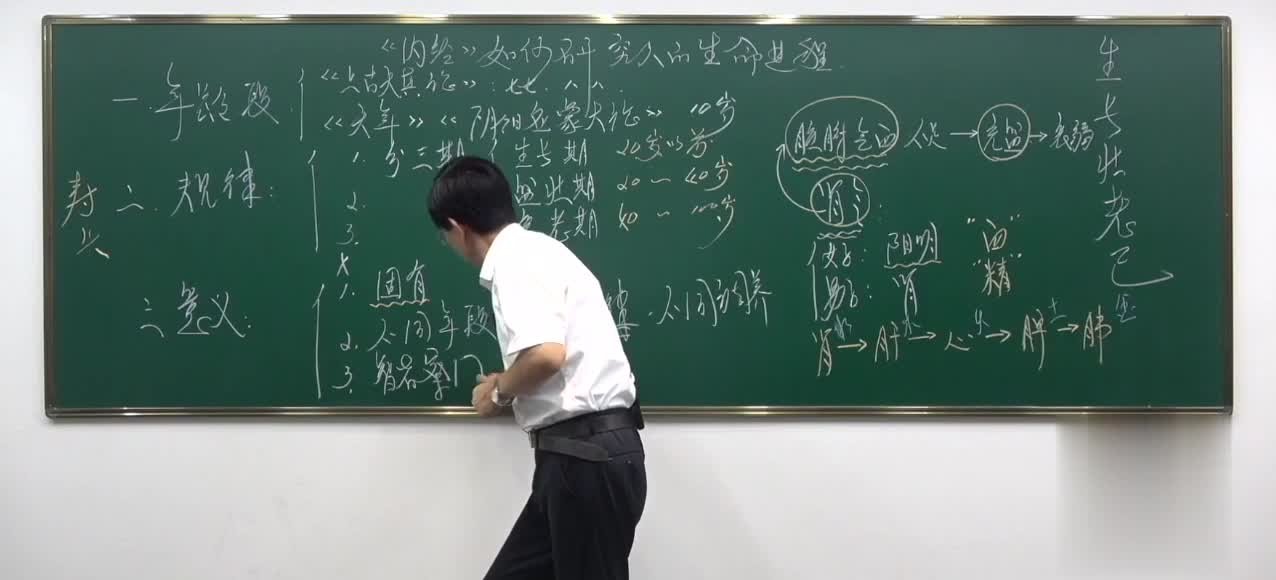 《内经》如何研究人的生命进程
一. 年龄段
《上古天真论》: 七七. 八八.
《天年》《阴阳应象大论》 10岁
寿夭
二. 规律:
1. 分三期 生长期 20岁以前
2. 盛壮期 20~40岁
3. 衰老期 40~100岁
三意义:
1. 固有
2. 不同年段 不同调养
3. 智者察同
脏腑气血 → 充盛 → 衰弱
肾:
女子: 阳明 "血"
男子: 肾 "精"
肾 → 肝 → 心 → 脾 → 肺
水 木 火 土 金
生长壮老已